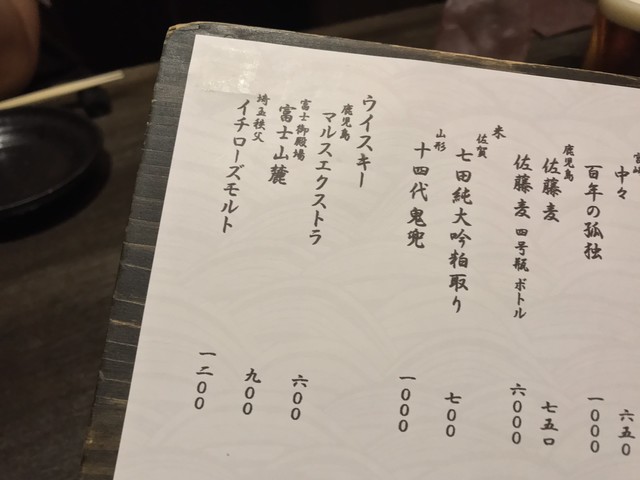 中々
六五〇
百年の孤独
一〇〇〇
鹿児島
佐藤麦
七五〇
佐藤麦 四号瓶 ボトル
六〇〇〇
米
佐賀
七田純大吟粕取り
七〇〇
山形
十四代鬼兜
一〇〇〇
ウイスキー
鹿児島
マルスエクストラ
六〇〇
富士御殿場
富士山麓
九〇〇
埼玉秩父
イチローズモルト
一二〇〇